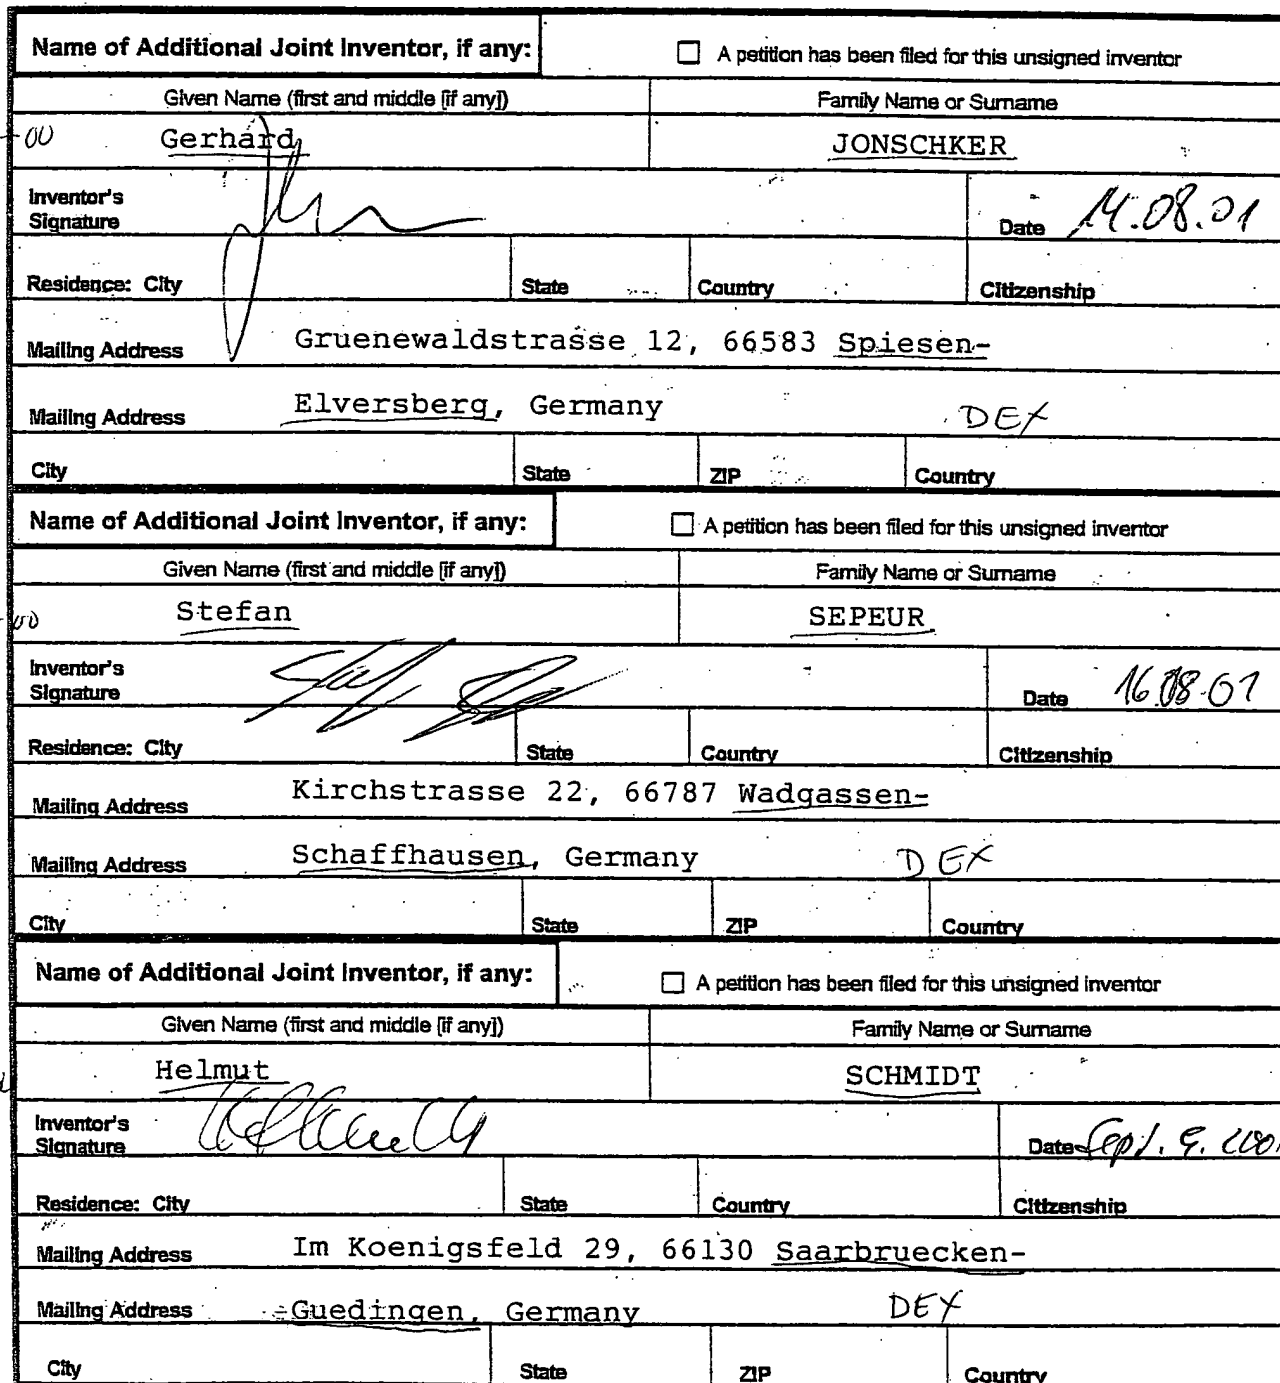 Name of Additional Joint Inventor, if any: ☐ A petition has been filed for this unsigned inventor
Given Name (first and middle [if any]) Family Name or Surname
00 Gerhard JONSCHKER
Inventor's
Signature Date 14.08.01
Residence: City State Country Citizenship
Mailing Address Gruenewaldstrasse 12, 66583 Spiesen-
Mailing Address Elversberg, Germany DEX
City State ZIP Country
Name of Additional Joint Inventor, if any: ☐ A petition has been filed for this unsigned inventor
Given Name (first and middle [if any]) Family Name or Surname
00 Stefan SEPEUR
Inventor's
Signature Date 16.08.01
Residence: City State Country Citizenship
Mailing Address Kirchstrasse 22, 66787 Wadgassen-
Mailing Address Schaffhausen, Germany DEX
City State ZIP Country
Name of Additional Joint Inventor, if any: ☐ A petition has been filed for this unsigned inventor
Given Name (first and middle [if any]) Family Name or Surname
Helmut SCHMIDT
Inventor's
Signature Date Sept. 9. 2001
Residence: City State Country Citizenship
Mailing Address Im Koenigsfeld 29, 66130 Saarbruecken-
Mailing Address -Guedingen, Germany DEX
City State ZIP Country